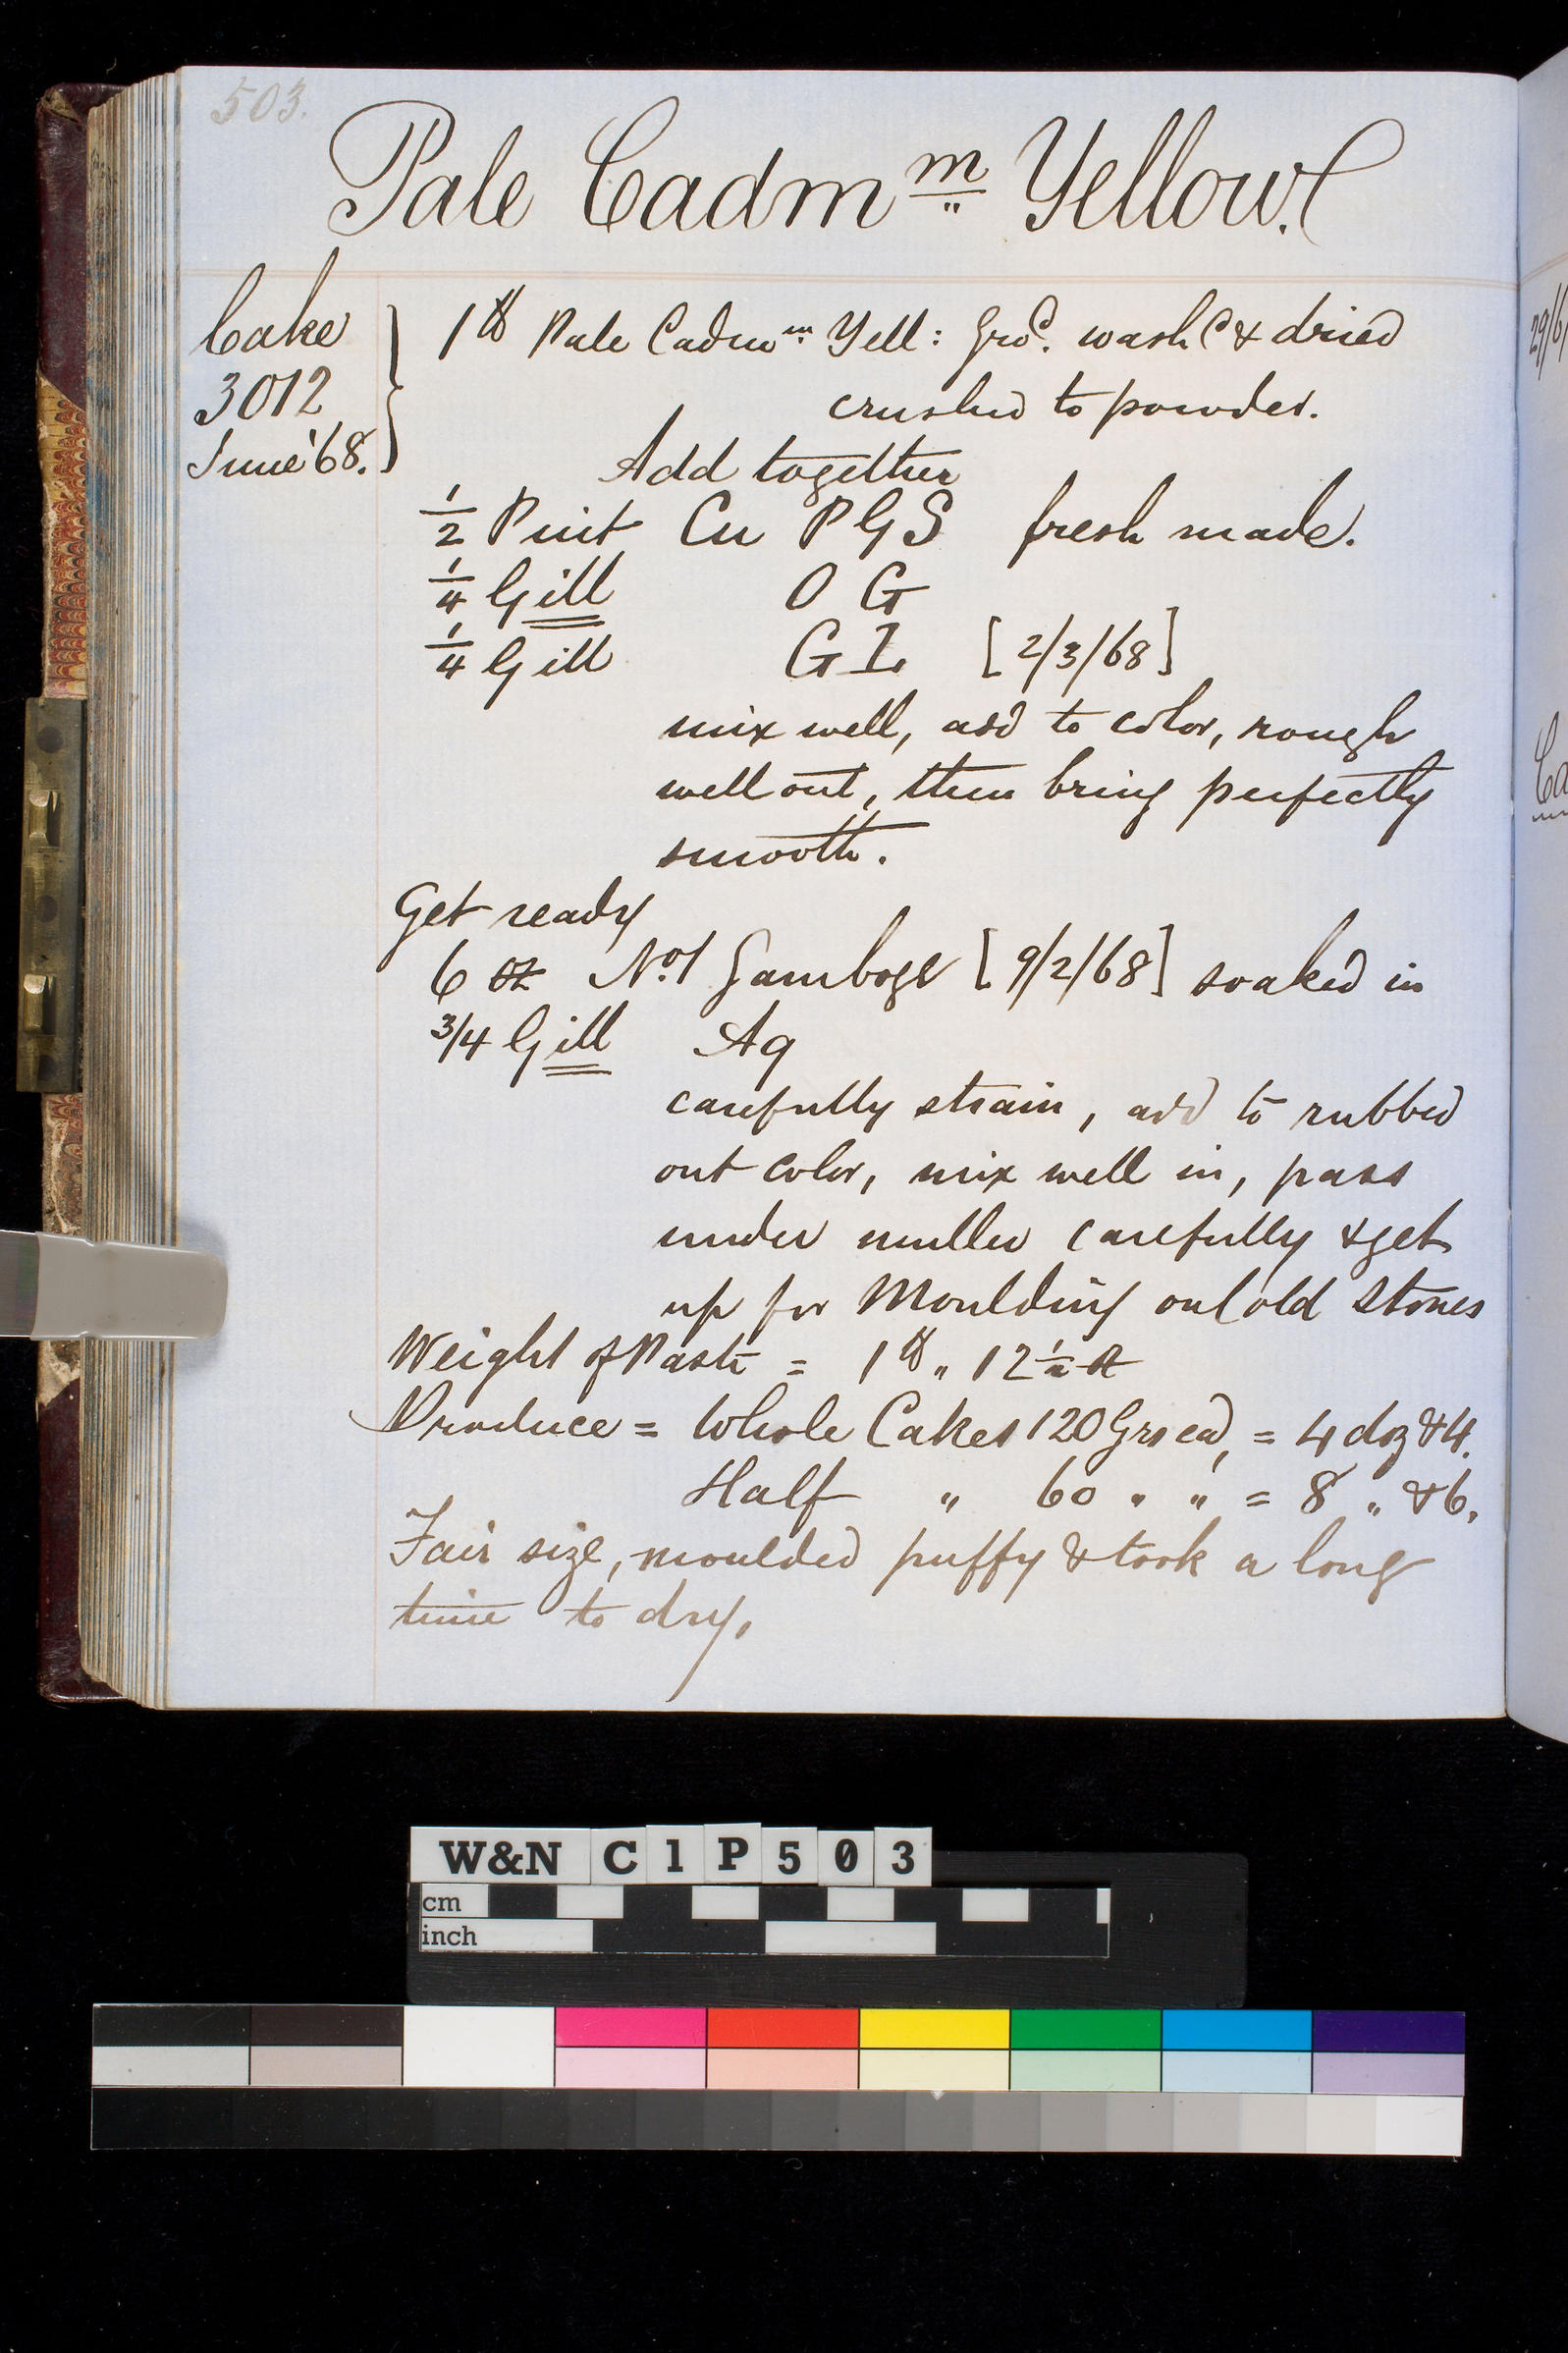 503.
Pale Cadm m Yellow.
Cake
3012
June '68.
1 lb Pale Cadm m Yell: Grd. washd & dried
crushed to powder.
Add together
1/2 Pint Cu P G S fresh made.
1/4 Gill O G
1/4 Gill G I. [2/3/68]
mix well, add to color, rough
well out, then bring perfectly
smooth.
Get ready
6 oz No. 1 Gamboge [9/2/68] soaked in
3/4 Gill Aq
carefully strain, add to rubbed
out color, mix well in, pass
under muller carefully & get
up for Moulding on old Stones
Weight of Paste = 1 lb " 12 1/2 oz
Produce = Whole Cakes 120 Grs ea, = 4 doz & 4.
Half " 60 " " = 8 " & 6.
Fair size, moulded puffy & took a long
time to dry.
29/6/
Ca
W&N C1P503
cm
inch